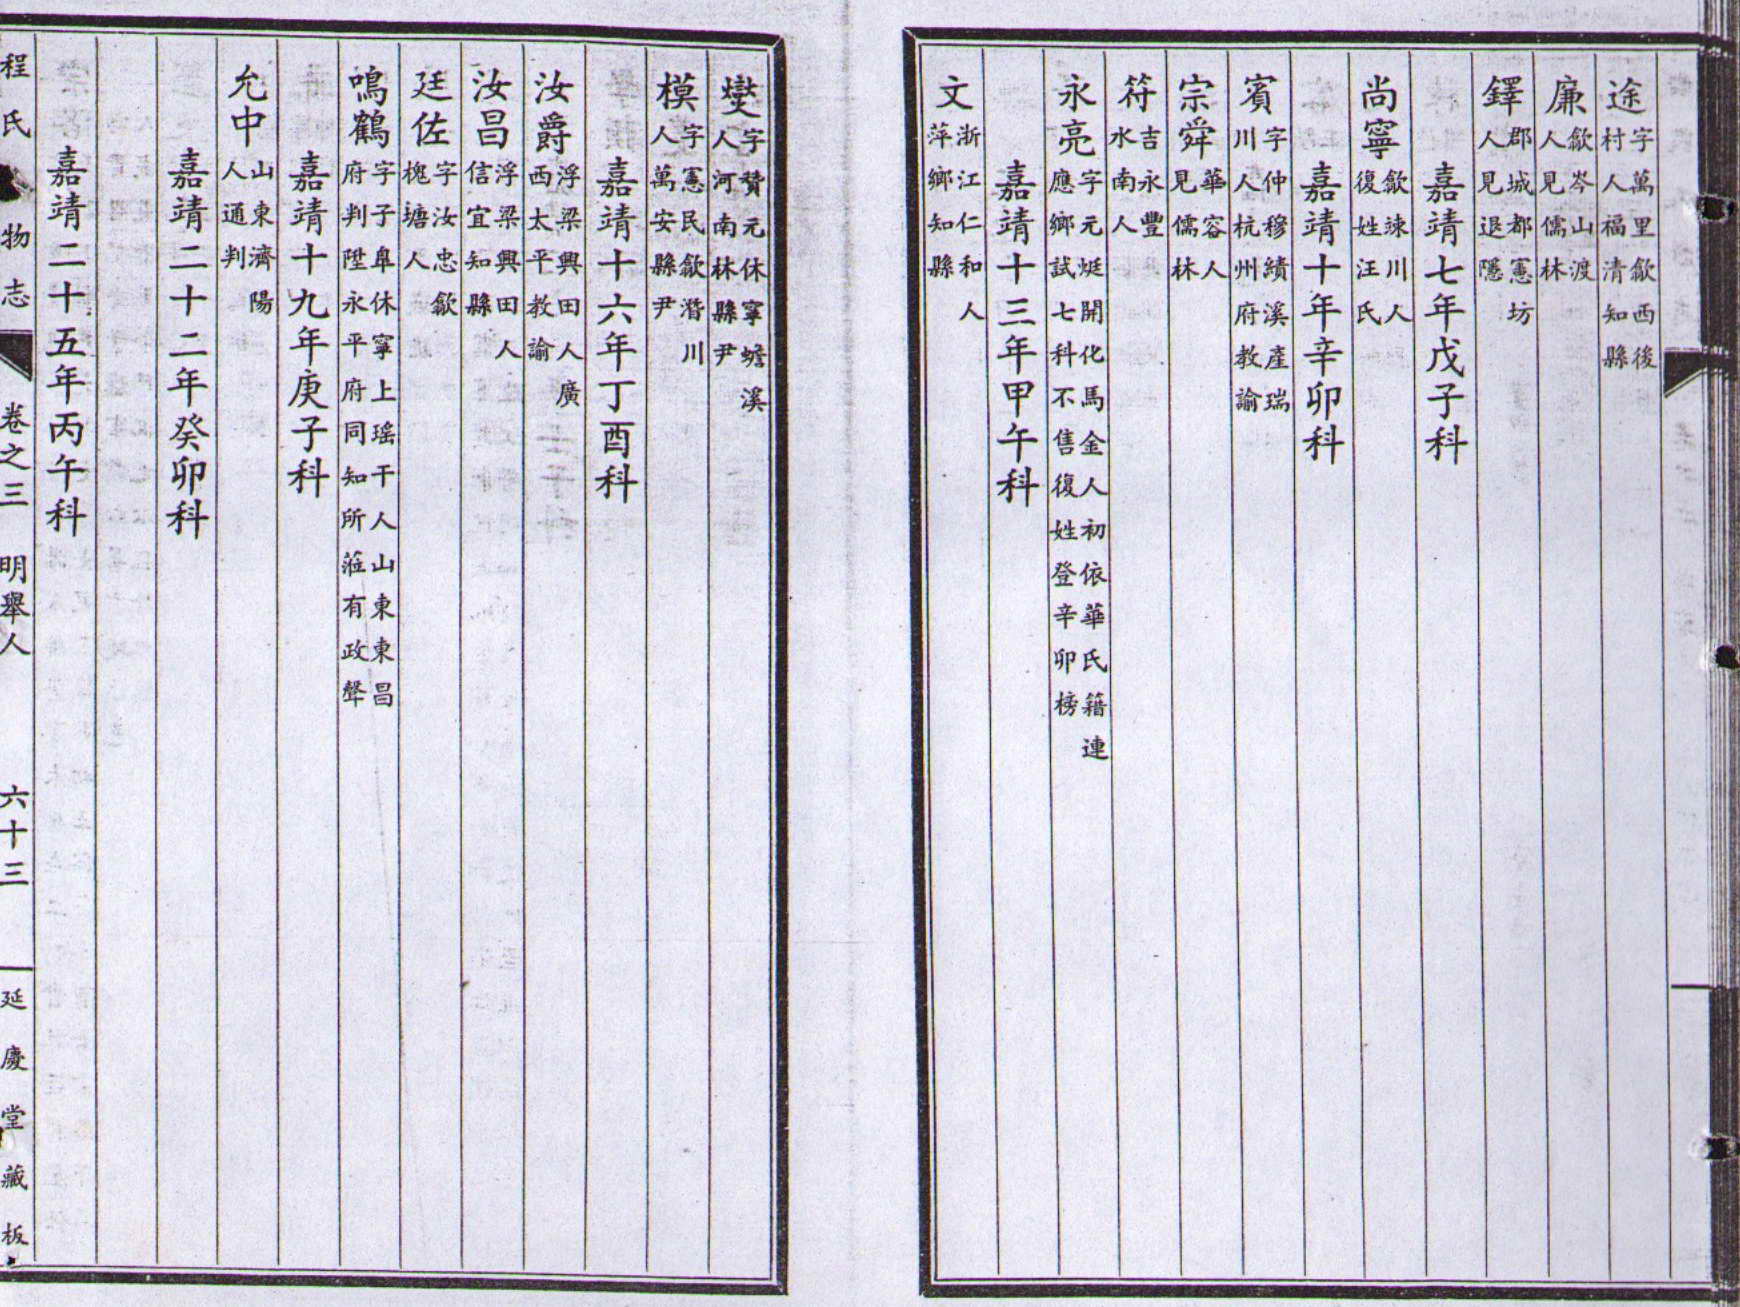 途 字萬里歙西後
村人福清知縣
廉 歙岑山渡
人見儒林
鐸 郡城都憲坊
人見退隱
嘉靖七年戊子科
尚寧 歙竦川人
復姓汪氏
嘉靖十年辛卯科
賓 字仲穆績溪產瑞
川人杭州府教諭
宗舜 華容人
見儒林
符 吉永豐
水南人
永亮 字元娗開化馬金人初依華氏籍連
應鄉試七科不售復姓登辛卯榜
嘉靖十三年甲午科
文 浙江仁和人
萍鄉知縣
燮 字贊元休寧蟾溪
人河南林縣尹
模 字憲民歙潛川
人萬安縣尹
嘉靖十六年丁酉科
汝爵 浮梁興田人廣
西太平教諭
汝昌 浮梁興田人
信宜知縣
廷佐 字汝忠歙
槐塘人
鳴鶴 字子臯休寧上瑶干人山東東昌
府判陞永平府同知所蒞有政聲
嘉靖十九年庚子科
允中 山東濟陽
人通判
嘉靖二十二年癸卯科
嘉靖二十五年丙午科
程氏 物志 卷之三 明舉人 六十三 延慶堂藏板